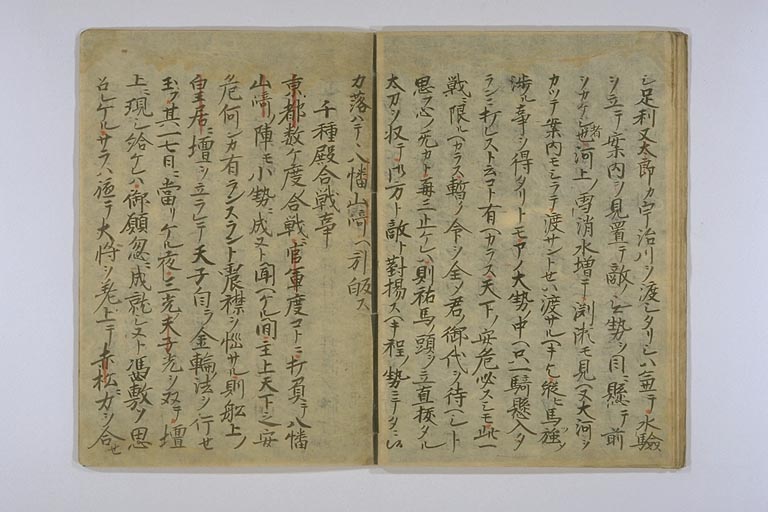 シ足利又太郎カ宇治川ヲ渡シタリシハ兼テ水験
シ立テ案内ヲ見置テ敵ノ無勢ヲ目ニ懸テ前
シカケシ者也河上ノ雪消水増テ渕瀬モ見ヘヌ大河ヲ
カツテ案内モシラテ渡サントせハ渡サルヘキ乎縦ヒ馬強ソ
渉ル事ヲ得タリトモアノ大勢ノ中ヘ只一騎懸入タ
ランニ打レスト云コト有ヘカラス天下ノ安危必スシモ此一
戦ニ限ルヘカラス暫ノ命ヲ全メ君ノ御代ヲ待ヘシト
思フ心ノ无カト再三止ケレハ則祐馬ノ頭ヲ立直抜タル
太刀ヲ収テ御方ト敵ト對揚スヘキ程ノ勢ニテタニ
カ落ハテハ八幡山﨑ヘ引皈ス
千種殿合戦事
京都数ケ度合戦ニ官軍度コトニ打負テ八幡
山﨑ノ陣モ小勢ニ成ヌト聞ヘケル間主上天下之安
危何ンカ有ランスラント震襟ヲ悩サル則舩上ノ
皇居ニ壇ヲ立ラレテ天子自ラ金輪法ヲ行せ
玉フ其七日ニ當リケル夜三光天子光ヲ双テ壇
上ニ現シ給ケレハ御願忽ニ成就シヌト馮敷ソ思
召レケルサラハ大将ヲ差上テ赤松ニカヲ合せ